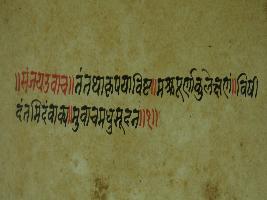 ॥संजयउवाच॥तंतथाकृपयाविष्टमश्रुपूर्णाकुलेक्षणं॥विषी
दंतमिदंवाक्यमुवाचमधुसूदनः॥१॥